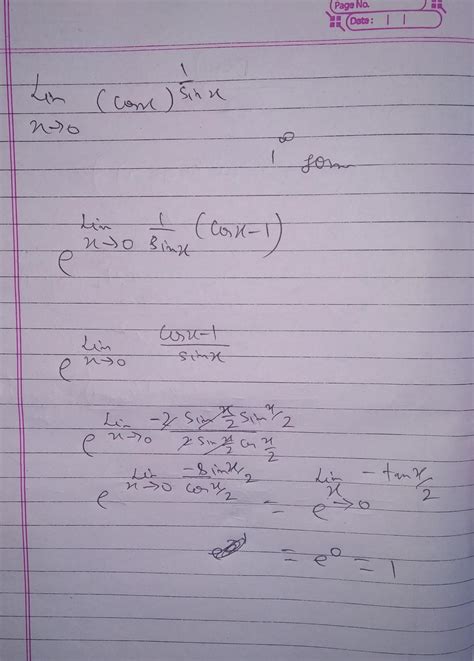 Page No.
Date: | |
Lim (cosx)^{1/sinx}
x→0
1^∞ form
e^{Lim x→0 1/sinx (cosx-1)}
e^{Lim x→0 (cosx-1)/sinx}
e^{Lim x→0 (-2 sin x/2 sin x/2)/(2 sin x/2 cos x/2)}
e^{Lim x→0 (-sin x/2)/(cos x/2)} = e^{Lim x→0 -tan x/2}
= e^0 = 1